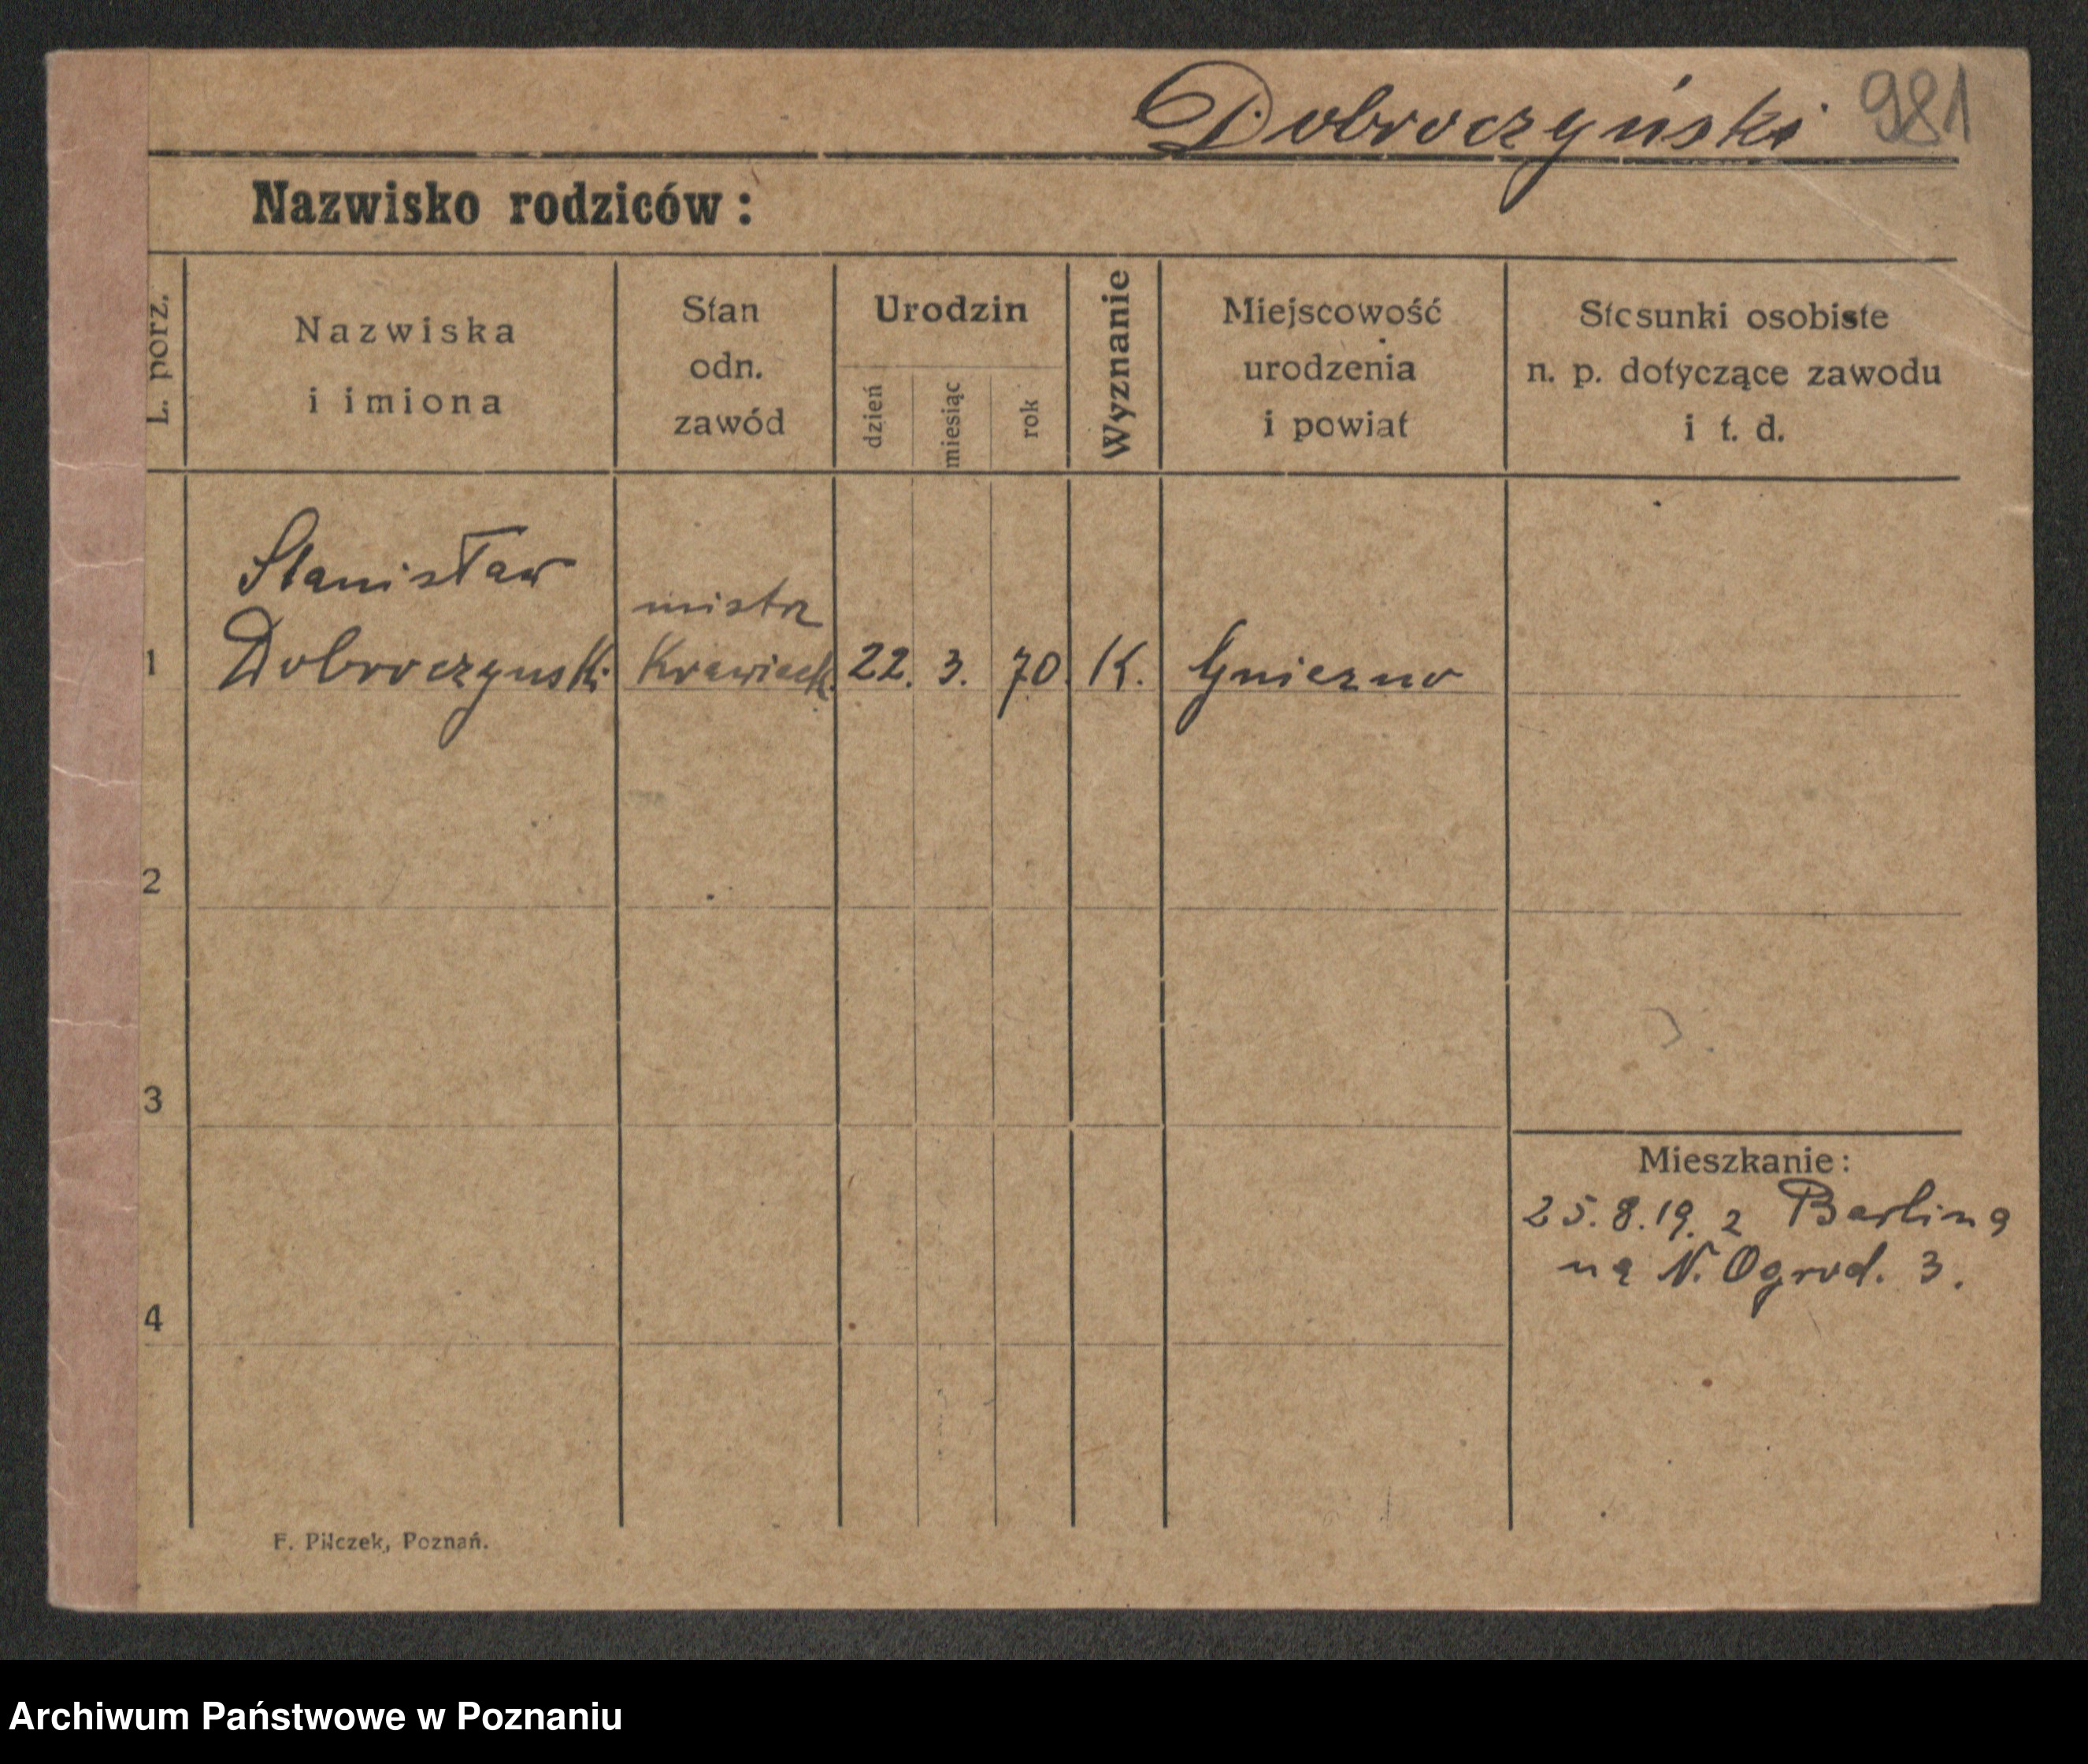 Dobroczyński 981
Nazwisko rodziców:
L. porz.
Nazwiska
i imiona
Stan
odn.
zawód
Urodzin
dzień
miesiąc
rok
Wyznanie
Miejscowość
urodzenia
i powiat
Stosunki osobiste
n. p. dotyczące zawodu
i t. d.
Stanisław
mistrz
1 Dobroczynski Krawieck. 22. 3. 70. K. Gniezno
2
3
Mieszkanie:
25.8.19. z Berlina
na N. Ogrod. 3.
4
F. Pilczek, Poznań.
Archiwum Państwowe w Poznaniu